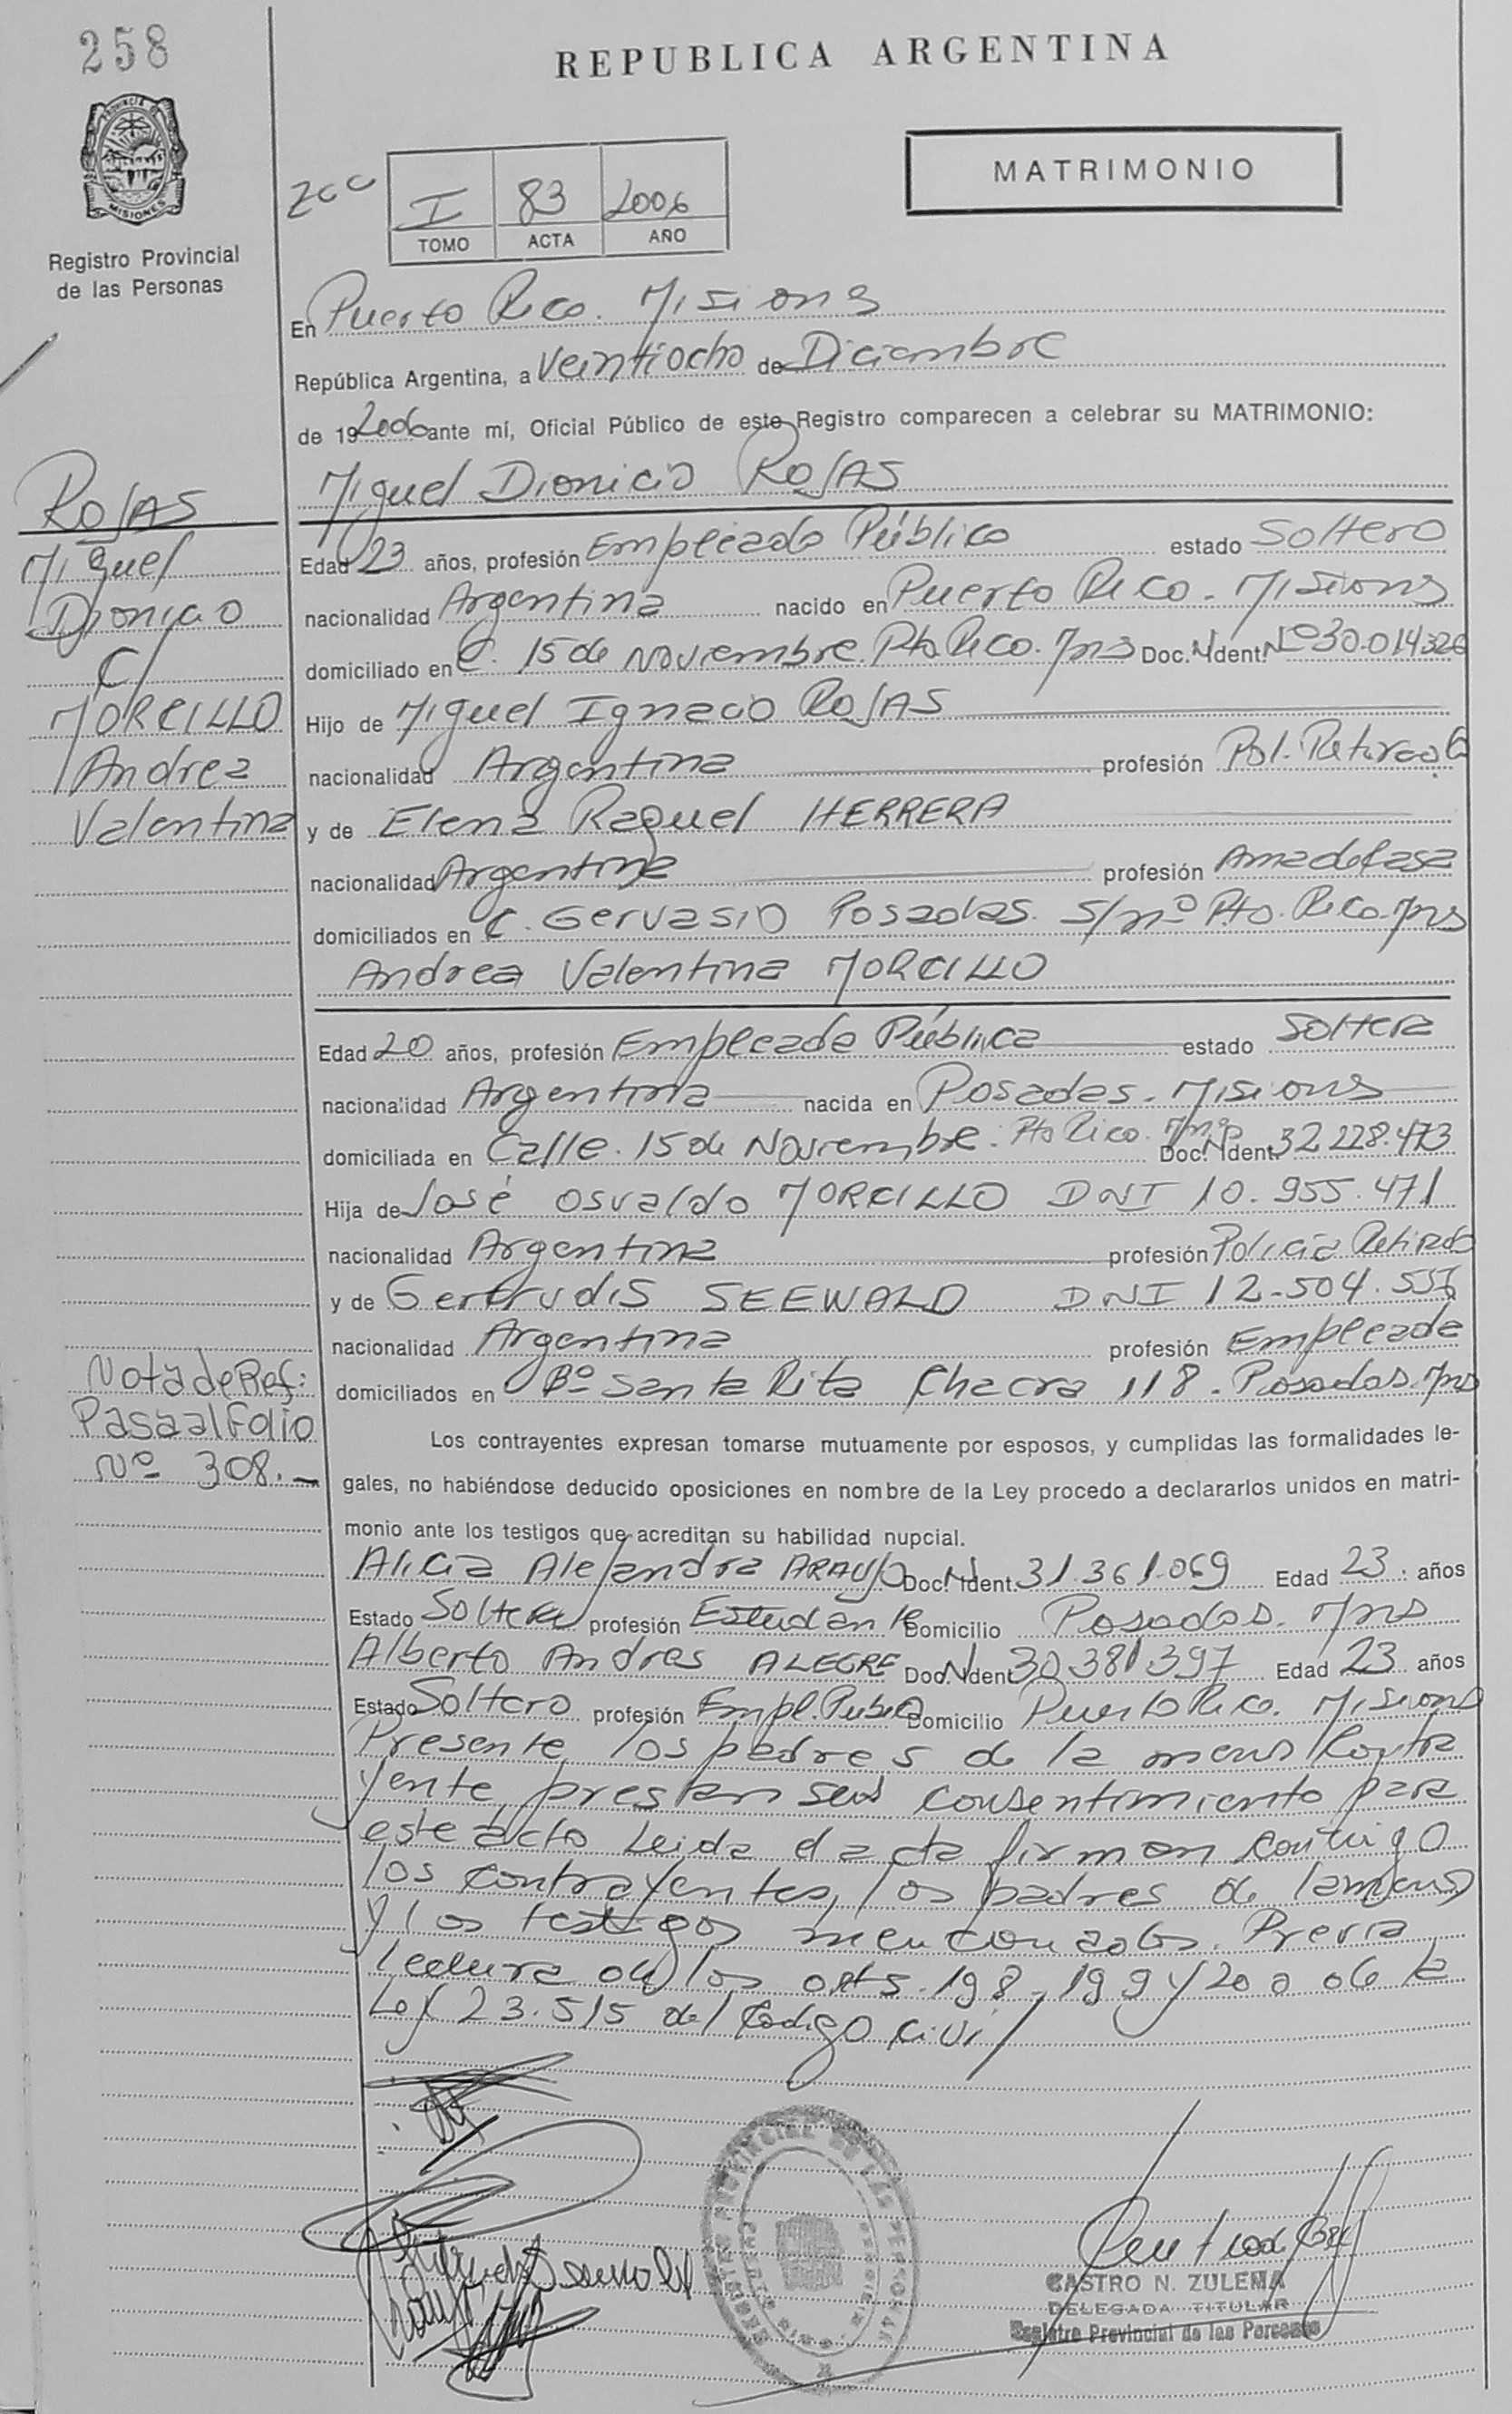 258
REPUBLICA ARGENTINA
MATRIMONIO
I 83 2006
TOMO ACTA AÑO
PROVINCIA DE
MISIONES
Registro Provincial
de las Personas
En Puerto Rico. Misiones
República Argentina, a Veintiocho de Diciembre
de 19 2006 ante mí, Oficial Público de este Registro comparecen a celebrar su MATRIMONIO:
Miguel Dionicio ROJAS
ROJAS
Miguel
Dionicio
C/
MORCILLO
Andrea
Valentina
Edad 23 años, profesión Empleado Público estado Soltero
nacionalidad Argentina nacido en Puerto Rico - Misiones
domiciliado en C. 15 de Noviembre. Pto Rico. Mns Doc. N Ident. Nº 30.014.326
Hijo de Miguel Ignacio ROJAS
nacionalidad Argentina profesión Pol. Retirado
y de Elena Raquel HERRERA
nacionalidad Argentina profesión Ama de Casa
domiciliados en C. Gervasio Posadas. S/nº Pto. Rico. Mns
Andrea Valentina MORCILLO
Edad 20 años, profesión Empleada Pública estado Soltera
nacionalidad Argentina nacida en Posadas - Misiones
domiciliada en Calle. 15 de Noviembre. Pto Rico. Mns Doc. N Ident. 32.228.473
Hija de José Osvaldo MORCILLO DNI 10.955.471
nacionalidad Argentina profesión Policia Retirado
y de Gertrudis SEEWALD DNI 12.504.556
nacionalidad Argentina profesión Empleada
domiciliados en Bº Santa Rita Chacra 118. Posadas. Mns
Nota de Ref:
Pasa al Folio
Nº 308.-
Los contrayentes expresan tomarse mutuamente por esposos, y cumplidas las formalidades le-
gales, no habiéndose deducido oposiciones en nombre de la Ley procedo a declararlos unidos en matri-
monio ante los testigos que acreditan su habilidad nupcial.
Alicia Alejandra ARAUJO Doc. N Ident. 31.361.069 Edad 23 años
Estado Soltera profesión Estudiante Domicilio Posadas. Mns
Alberto Andres ALEGRE Doc. N Ident. 30.381.397 Edad 23 años
Estado Soltero profesión Empl. Publico Domicilio Puerto Rico. Misiones
Presente los padres de la menor Contra
yente, prestan sus consentimiento para
este acto Leida el acta firman conmigo
los contrayentes, los padres de la menor
y los testigos mencionados. Previa
lectura de los arts. 198, 199 y 200 de la
Ley 23.515 del Codigo Civil
REGISTRO PROVINCIAL DE LAS PERSONAS
CASTRO N. ZULEMA
DELEGADA TITULAR
Registro Provincial de las Personas